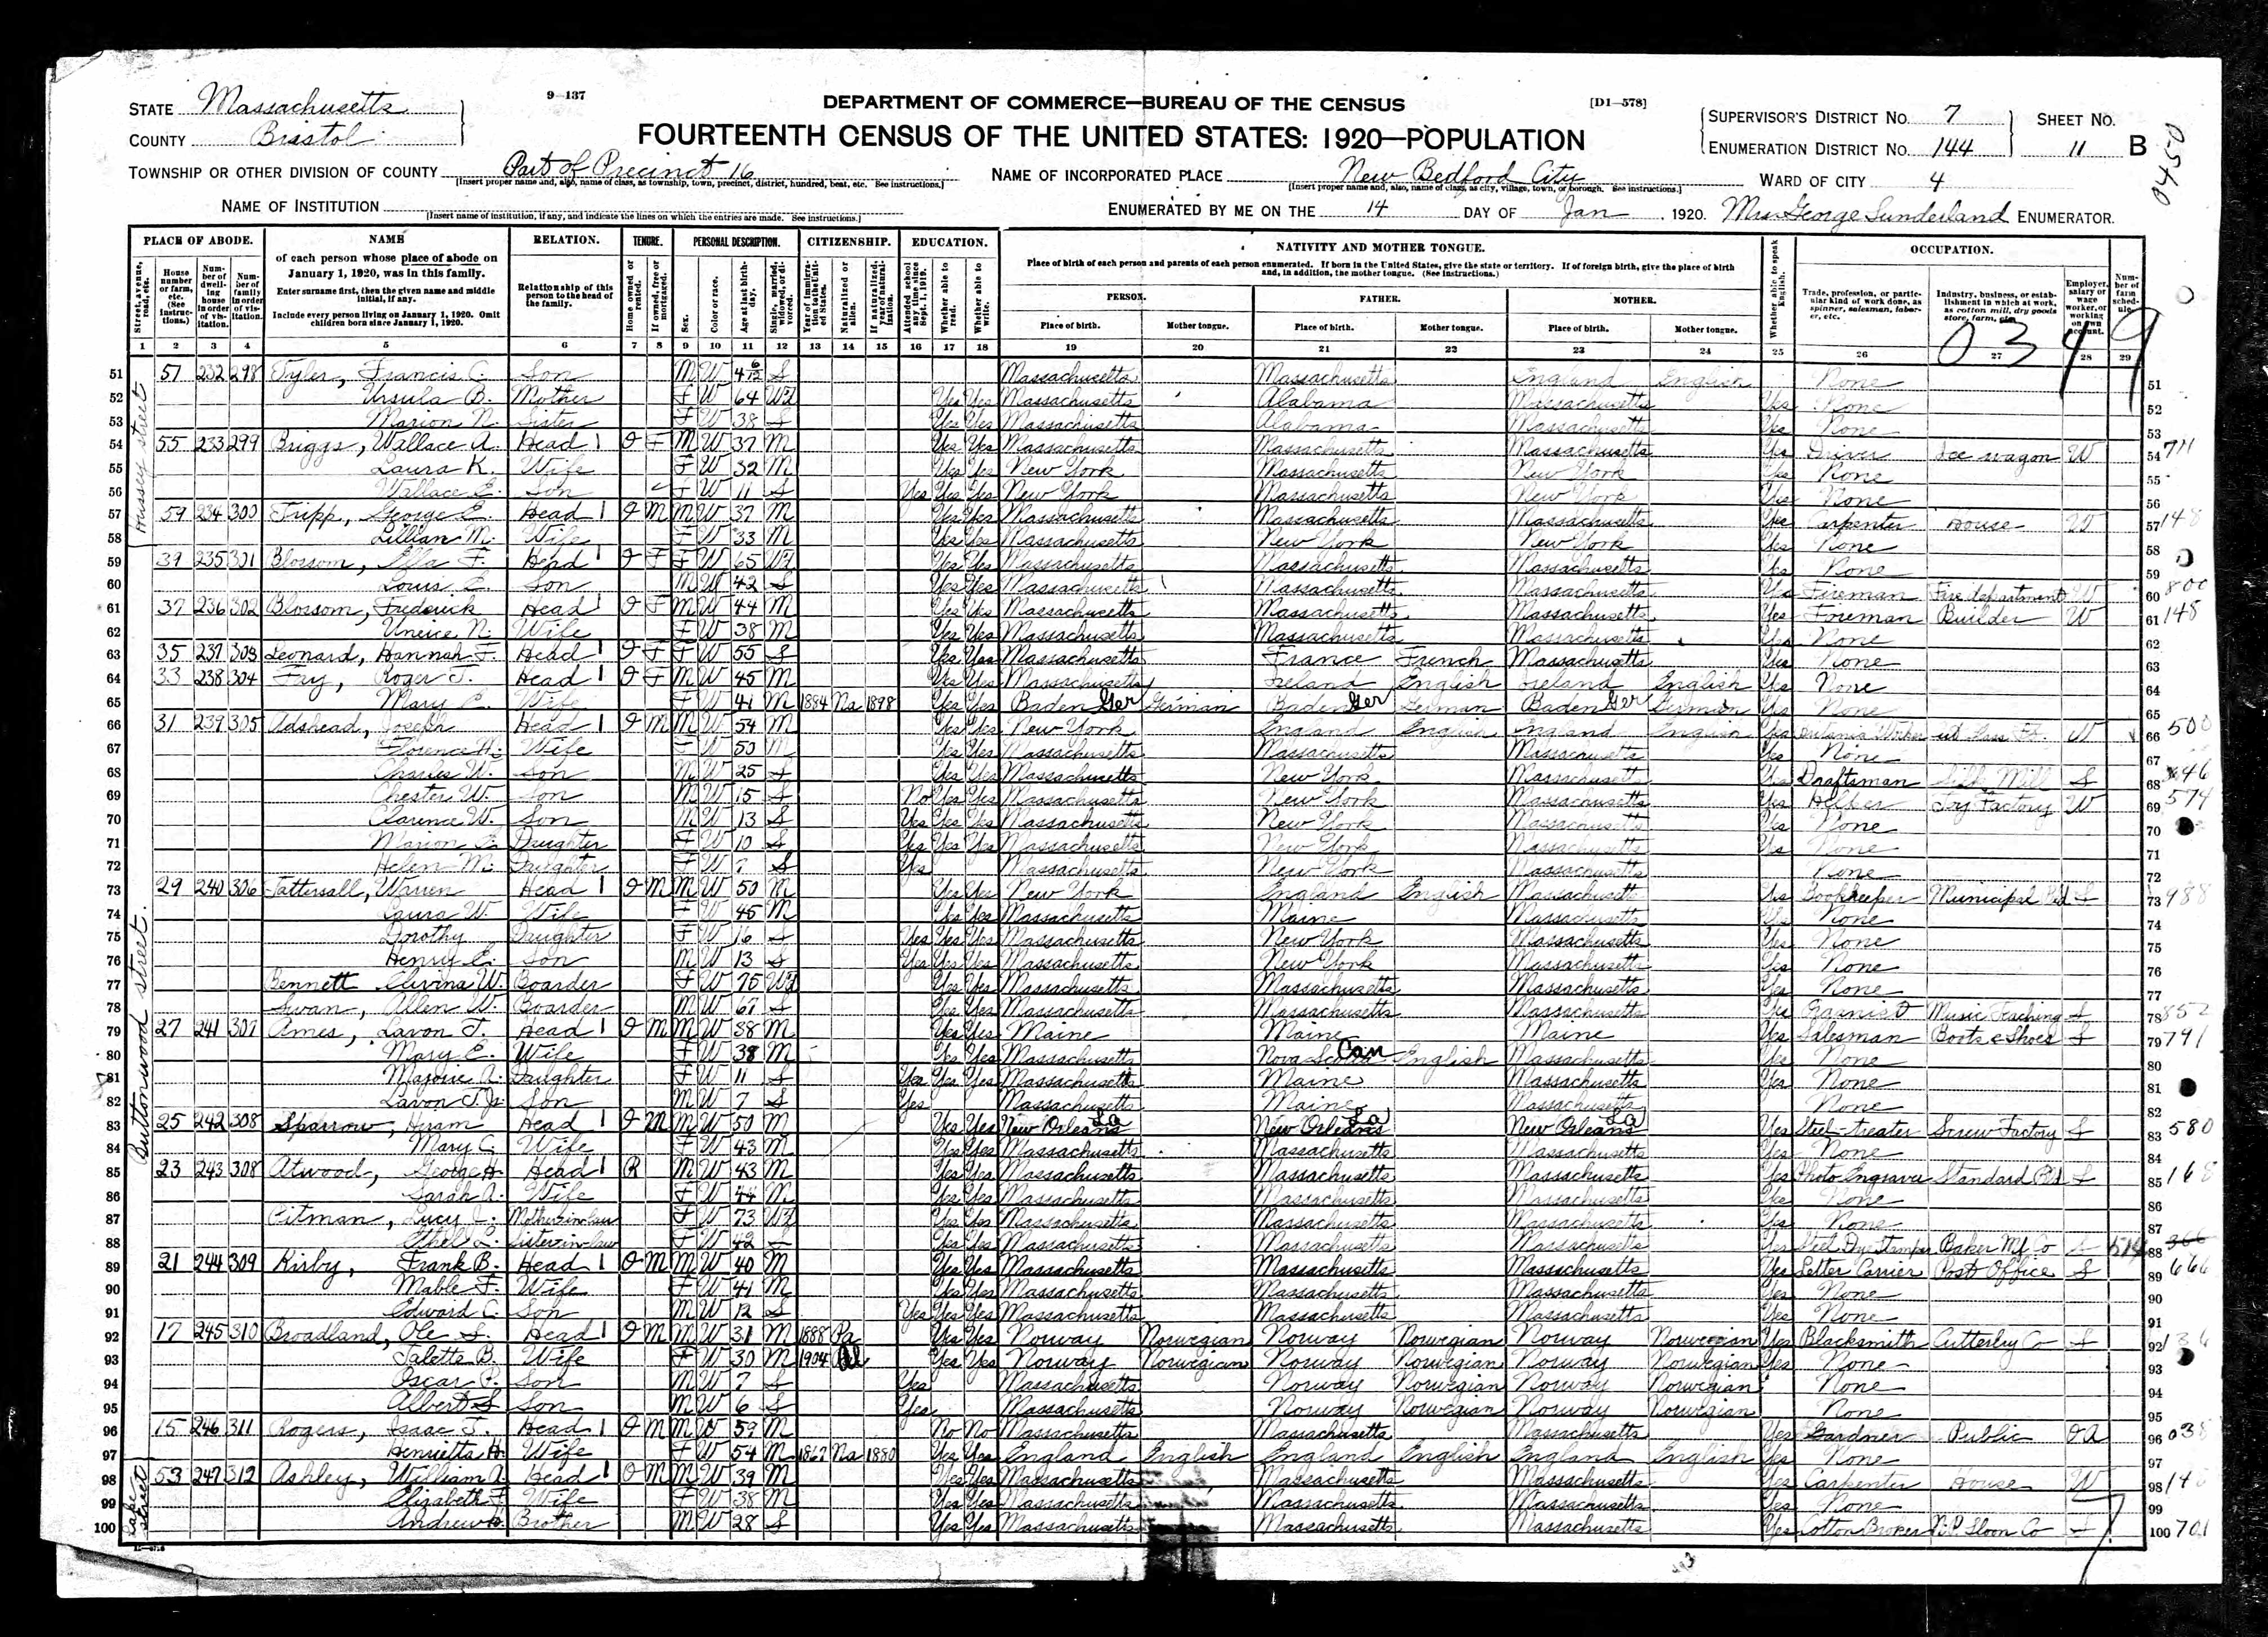 STATE Massachusetts
9—137
DEPARTMENT OF COMMERCE—BUREAU OF THE CENSUS
[D1—578]
COUNTY Bristol
FOURTEENTH CENSUS OF THE UNITED STATES: 1920—POPULATION
SUPERVISOR'S DISTRICT No. 7
SHEET No.
ENUMERATION DISTRICT No. 144
11 B
0450
TOWNSHIP OR OTHER DIVISION OF COUNTY Part of Precinct 16
[Insert proper name and, also, name of class, as township, town, precinct, district, hundred, beat, etc. See instructions.]
NAME OF INCORPORATED PLACE New Bedford City
[Insert proper name and, also, name of class, as city, village, town, or borough. See instructions.]
WARD OF CITY 4
NAME OF INSTITUTION
[Insert name of institution, if any, and indicate the lines on which the entries are made. See instructions.]
ENUMERATED BY ME ON THE 14 DAY OF Jan, 1920. Mrs George Sunderland ENUMERATOR.
PLACE OF ABODE. NAME RELATION. TENURE. PERSONAL DESCRIPTION. CITIZENSHIP. EDUCATION. NATIVITY AND MOTHER TONGUE. OCCUPATION.
of each person whose place of abode on January 1, 1920, was in this family.
Enter surname first, then the given name and middle initial, if any.
Include every person living on January 1, 1920. Omit children born since January 1, 1920.
Relationship of this person to the head of the family.
Place of birth of each person and parents of each person enumerated. If born in the United States, give the state or territory. If of foreign birth, give the place of birth and, in addition, the mother tongue. (See instructions.)
PERSON. FATHER. MOTHER.
Place of birth. Mother tongue. Place of birth. Mother tongue. Place of birth. Mother tongue.
1 2 3 4 5 6 7 8 9 10 11 12 13 14 15 16 17 18 19 20 21 22 23 24 25 26 27 28 29
0349
Hussey street
51 57 232 298 Tyler, Francis C. Son M W 4 6/12 S Massachusetts Massachusetts England English None 51
52 Ursula B. Mother F W 64 Wd Yes Yes Massachusetts Alabama Massachusetts Yes None 52
53 Marion N. Sister F W 38 S Yes Yes Massachusetts Alabama Massachusetts Yes None 53
54 55 233 299 Briggs, Wallace A. Head 1 O F M W 37 M Yes Yes Massachusetts Massachusetts Massachusetts Yes Driver Ice wagon W 54
55 Laura K. Wife F W 32 M Yes Yes New York Massachusetts New York Yes None 55
56 Wallace E. Son F W 11 S Yes Yes Yes New York Massachusetts New York Yes None 56
57 59 234 300 Tripp, George E. Head 1 O M M W 37 M Yes Yes Massachusetts Massachusetts Massachusetts Yes Carpenter House W 57 148
58 Lillian M. Wife F W 33 M Yes Yes Massachusetts New York New York Yes None 58
Buttonwood street.
59 39 235 301 Blossom, Ella F. Head 1 O F F W 65 Wd Yes Yes Massachusetts Massachusetts Massachusetts Yes None 59
60 Louis E. Son M W 42 S Yes Yes Massachusetts Massachusetts Massachusetts Yes Fireman Fire department W 60 800
61 37 236 302 Blossom, Frederick Head 1 O F M W 44 M Yes Yes Massachusetts Massachusetts Massachusetts Yes Foreman Builder W 61 148
62 Uneice N. Wife F W 38 M Yes Yes Massachusetts Massachusetts Massachusetts Yes None 62
63 35 237 303 Leonard, Hannah F. Head 1 O F F W 55 S Yes Yes Massachusetts France French Massachusetts Yes None 63
64 33 238 304 Fay, Roger J. Head 1 O F M W 45 M Yes Yes Massachusetts Ireland English Ireland English Yes None 64
65 Mary Wife F W 41 M 1884 Na 1898 Yes Yes Baden Ger German Baden Ger German Baden Ger German Yes None 65
66 31 239 305 Adshead, Joseph Head 1 O M M W 54 M Yes Yes New York England English England English Yes W 66 500
67 Florence H. Wife F W 50 M Yes Yes Massachusetts Massachusetts Massachusetts Yes None 67
68 Charles W. Son M W 25 S Yes Yes Massachusetts New York Massachusetts Yes Draftsman Silk Mill S 68
69 Chester W. Son M W 15 S No Yes Yes Massachusetts New York Massachusetts Yes Helper Toy Factory W 69 574
70 Clarence W. Son M W 13 S Yes Yes Yes Massachusetts New York Massachusetts Yes None 70
71 Marion Daughter F W 10 S Yes Yes Yes Massachusetts New York Massachusetts Yes None 71
72 Helen M. Daughter F W 7 S Yes Massachusetts New York Massachusetts None 72
73 29 240 306 Tattersall, Warren Head 1 O M M W 50 M Yes Yes New York England English Massachusetts Yes Bookkeeper Municipal S 73 988
74 Laura W. Wife F W 45 M Yes Yes Massachusetts Maine Massachusetts Yes None 74
75 Dorothy Daughter F W 16 S Yes Yes Yes Massachusetts New York Massachusetts Yes None 75
76 Henry E. Son M W 13 S Yes Yes Yes Massachusetts New York Massachusetts Yes None 76
77 Bennett Elvina W. Boarder F W 75 Wd Yes Yes Massachusetts Massachusetts Massachusetts Yes None 77
78 Swan, Allen W. Boarder M W 67 S Yes Yes Massachusetts Massachusetts Massachusetts Yes Music Teaching 78 852
79 27 241 307 Ames, Lavon T. Head 1 O M M W 38 M Yes Yes Maine Maine Maine Yes Salesman Boots & Shoes S 79 741
80 Mary E. Wife F W 38 M Yes Yes Massachusetts Nova Scotia Can English Massachusetts Yes None 80
81 Majorie A. Daughter F W 11 S Yes Yes Yes Massachusetts Maine Massachusetts Yes None 81
82 Lavon T. Jr. Son M W 7 S Yes Massachusetts Maine Massachusetts None 82
83 25 242 308 Sparrow, Hiram Head 1 O M M W 50 M Yes Yes New Orleans La New Orleans La New Orleans La Yes Steel-treater Screw Factory S 83 580
84 Mary C. Wife F W 43 M Yes Yes Massachusetts Massachusetts Massachusetts Yes None 84
85 23 243 308 Atwood, George H. Head 1 R M W 43 M Yes Yes Massachusetts Massachusetts Massachusetts Yes Photo Engraver Standard S 85 168
86 Sarah A. Wife F W 44 M Yes Yes Massachusetts Massachusetts Massachusetts Yes None 86
87 Pitman, Lucy J. Mother-in-law F W 73 Wd Yes Yes Massachusetts Massachusetts Massachusetts Yes None 87
88 Ethel L. Sister-in-law F W 42 S Yes Yes Massachusetts Massachusetts Massachusetts Yes Steel Dye Stamper Baker Mf Co S 88
89 21 244 309 Kirby, Frank B. Head 1 O M M W 40 M Yes Yes Massachusetts Massachusetts Massachusetts Yes Letter Carrier Post Office S 89 666
90 Mable F. Wife F W 41 M Yes Yes Massachusetts Massachusetts Massachusetts Yes None 90
91 Edward C. Son M W 12 S Yes Yes Yes Massachusetts Massachusetts Massachusetts Yes None 91
92 17 245 310 Broadland, Ole S. Head 1 O M M W 31 M 1888 Pa Yes Yes Norway Norwegian Norway Norwegian Norway Norwegian Yes Blacksmith Cutterley Co S 92
93 Talette B. Wife F W 30 M 1904 Al Yes Yes Norway Norwegian Norway Norwegian Norway Norwegian Yes None 93
94 Oscar P. Son M W 7 S Yes Massachusetts Norway Norwegian Norway Norwegian None 94
95 Albert S Son M W 6 S Yes Massachusetts Norway Norwegian Norway Norwegian None 95
96 15 246 311 Rogers, Isaac T. Head 1 O M M W 59 M No No Massachusetts Massachusetts Massachusetts Yes Gardner Public OA 96 038
97 Henrietta H. Wife F W 54 M 1867 Na 1880 Yes Yes England English England English England English Yes None 97
Cape street
98 53 247 312 Ashley, William A. Head 1 O M M W 39 M Yes Yes Massachusetts Massachusetts Massachusetts Yes Carpenter House W 98 148
99 Elizabeth F. Wife F W 38 M Yes Yes Massachusetts Massachusetts Massachusetts Yes None 99
100 Andrew Brother M W 28 S Yes Yes Massachusetts Massachusetts Massachusetts Yes Cotton Broker Sloon Co 100 701